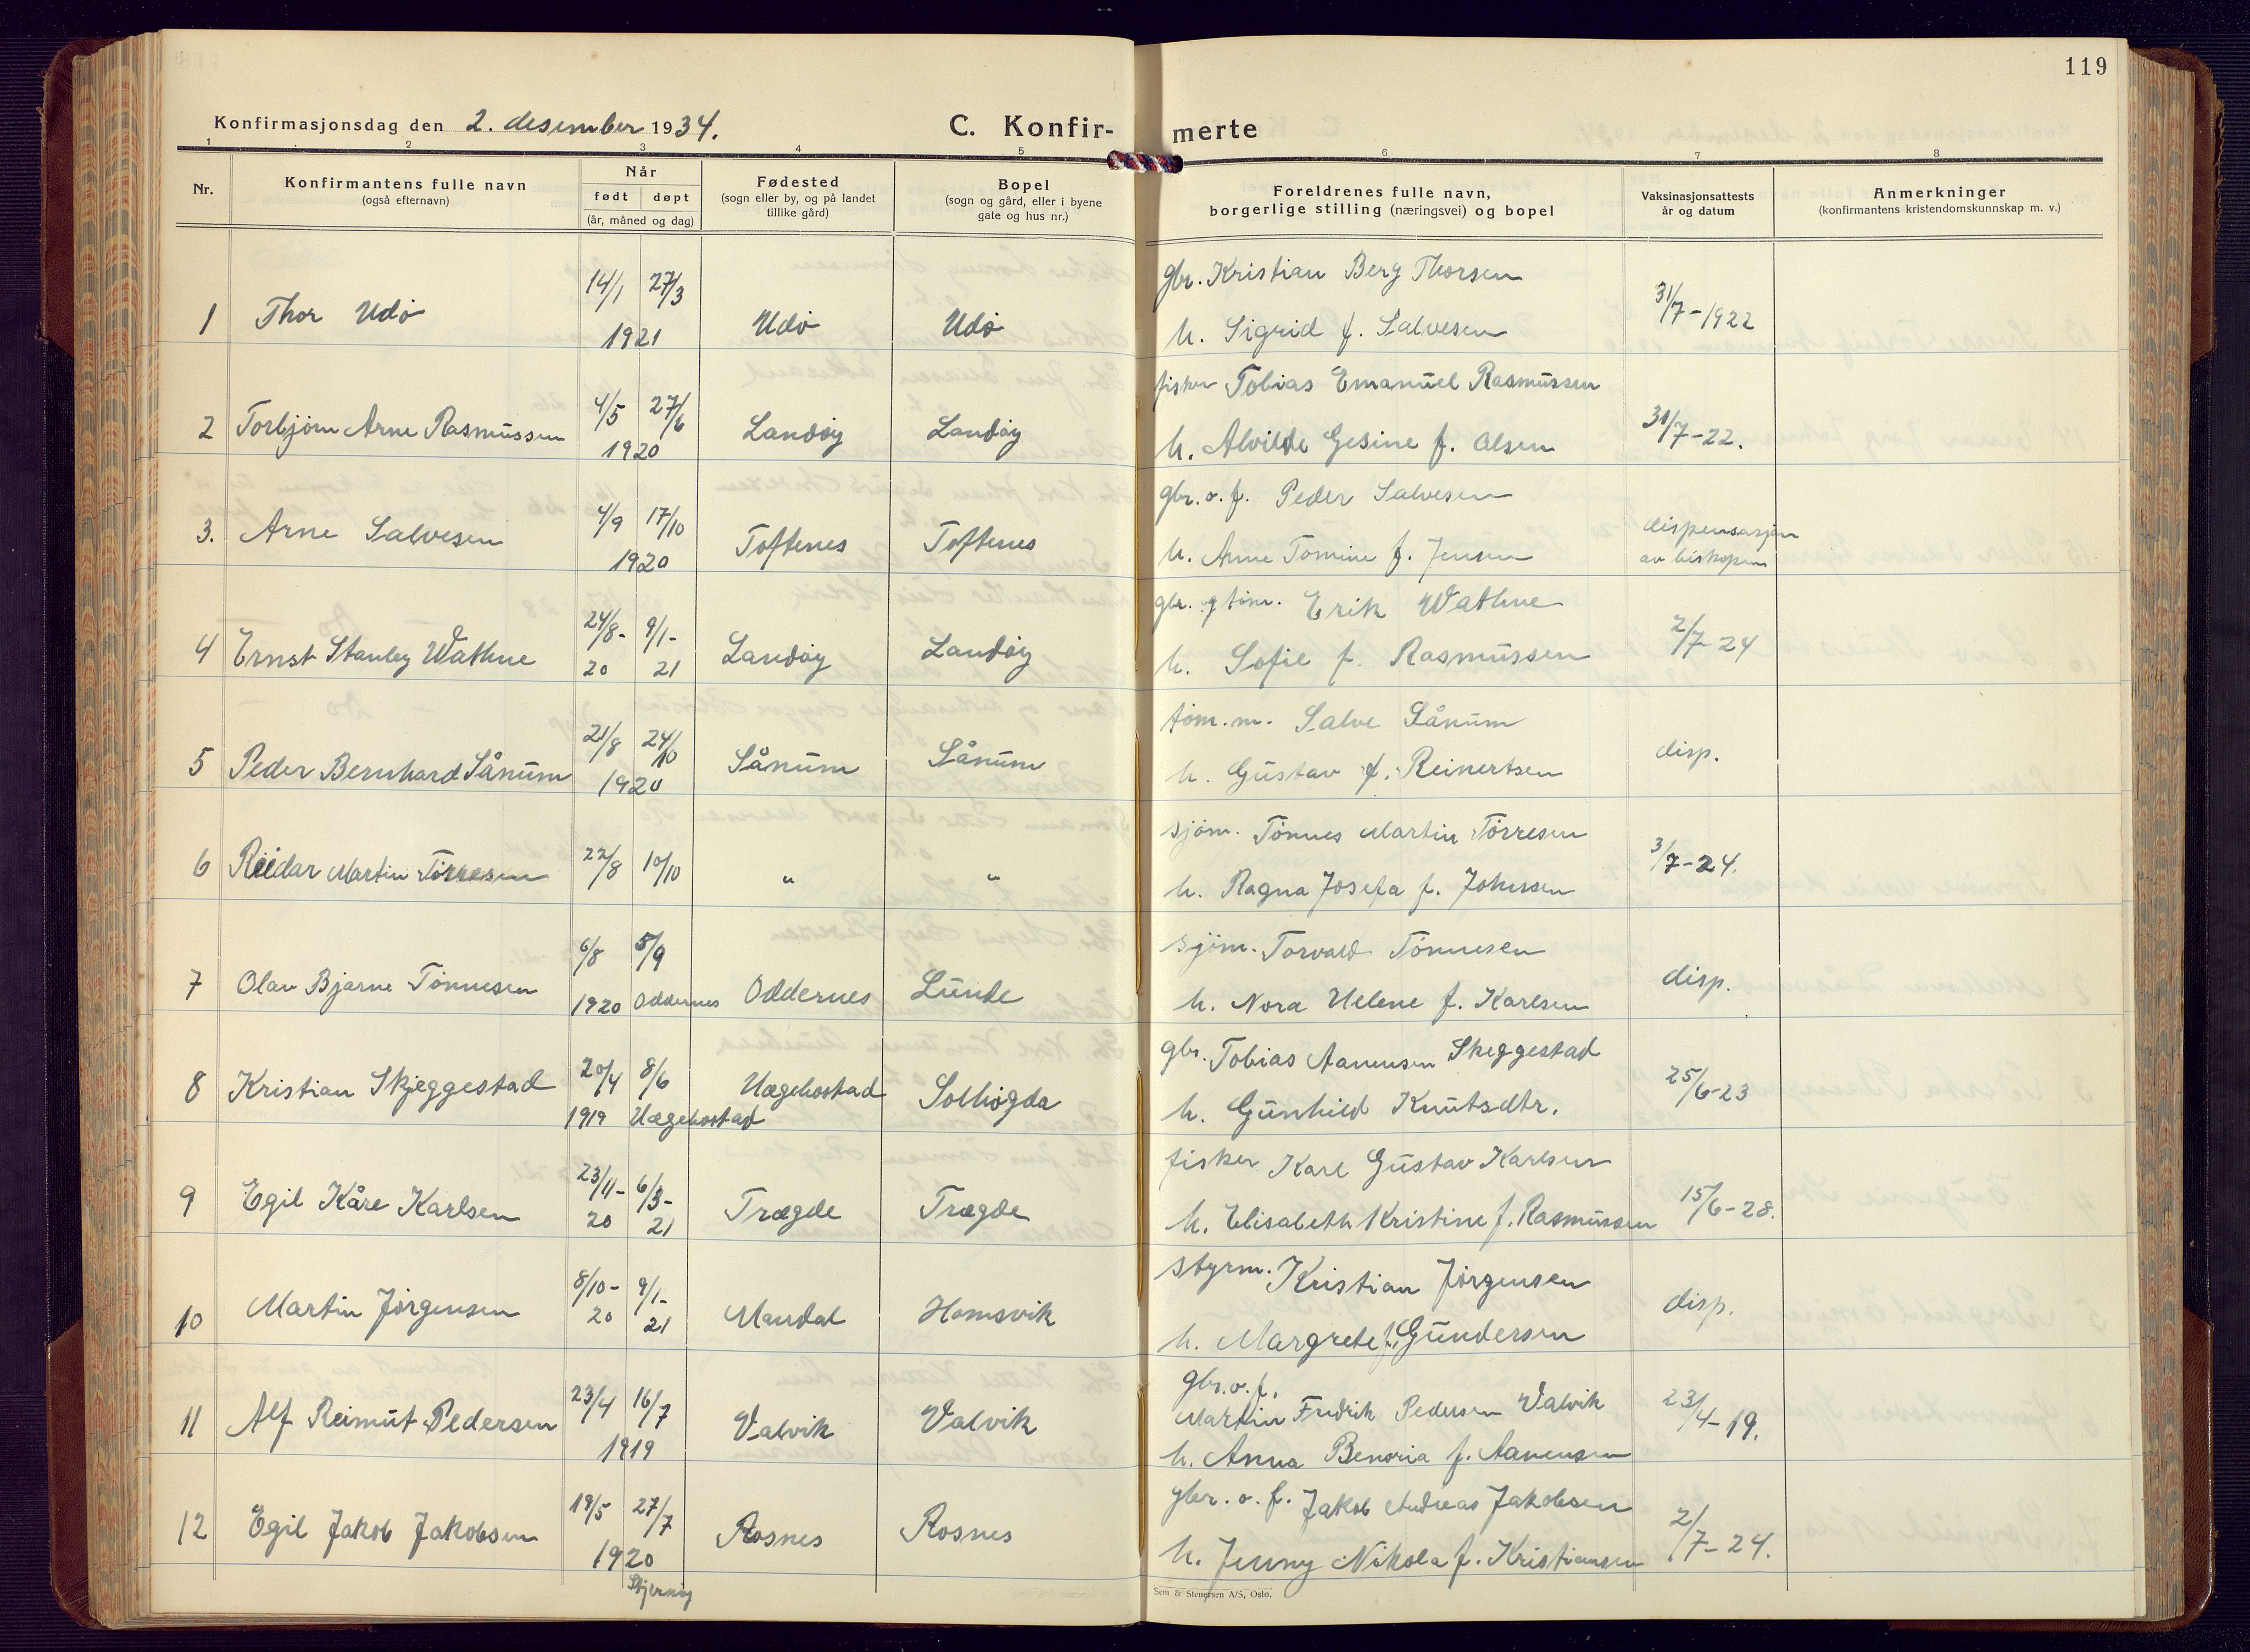 119
Konfirmasjonsdag den 2. desember 1934.
C. Konfir-merte
1 2 3 4 5 6 7 8
Nr.
Konfirmantens fulle navn
(også efternavn)
Når
født døpt
(år, måned og dag)
Fødested
(sogn eller by, og på landet
tillike gård)
Bopel
(sogn og gård, eller i byene
gate og hus nr.)
Foreldrenes fulle navn,
borgerlige stilling (næringsvei) og bopel
Vaksinasjonsattests
år og datum
Anmerkninger
(konfirmantens kristendomskunnskap m. v.)
14/1 27/3 gbr. Kristian Berg Thorsen
1 Thor Udø 1921 Udø Udø h. Sigrid f. Salvesen 31/7-1922
4/5 27/6 fisker Tobias Emanuel Rasmussen
2 Torbjørn Arne Rasmussen 1920 Landøy Landøy h. Alvilde Gesine f. Olsen 31/7-22.
4/9 17/10 gbr. o. f. Peder Salvesen dispensasjon
3. Arne Salvesen 1920 Toftenes Toftenes h. Anne Tomine f. Jensen av biskopen
24/8- 9/1- gbr. og tøm. Erik Wathne
4 Ernst Stanley Wathne 20 21 Landøy Landøy h. Sofie f. Rasmussen 2/7-24
21/8 24/10 tøm. m. Salve Sånum
5 Peder Bernhard Sånum 1920 Sånum Sånum h. Gustav f. Reinertsen disp.
22/8 10/10 sjøm. Tønnes Martin Tørresen
6 Reidar Martin Tørresen " " h. Ragna Josefa f. Johnsen 3/7-24.
6/8 5/9 sjøm. Torvald Tønnesen
7 Olav Bjarne Tønnesen 1920 Oddernes Oddernes Lunde h. Nora Helene f. Karlsen disp.
20/4 8/6 gbr. Tobias Aanensen Skeggestad
8 Kristian Skjeggestad 1919 Hægebostad Hægebostad Solhøgda h. Gunhild Knutsdtr. 25/6-23
23/11- 6/3- fisker Karl Gustav Karlsen
9 Egil Kåre Karlsen 20 21 Trægde Trægde h. Elisabeth Kristine f. Rasmussen 15/6-28.
8/10- 9/1- styrm. Kristian Jørgensen
10 Martin Jørgensen 20 21 Mandal Homsvik h. Margrete f. Gundersen disp.
23/4 16/7 gbr. o. f.
Martin Fredrik Pedersen Valvik
11 Alf Reimut Pedersen 1919 Valvik Valvik h. Anna Benoria f. Aanensen 23/4-19.
19/5 27/7 gbr. o. f. Jakob Andreas Jakobsen
12 Egil Jakob Jakobsen 1920 Rosnes Rosnes h. Jenny Nikola f. Kristiansen 2/7-24.
Stjernøy
Sem & Stenersen A/S, Oslo.